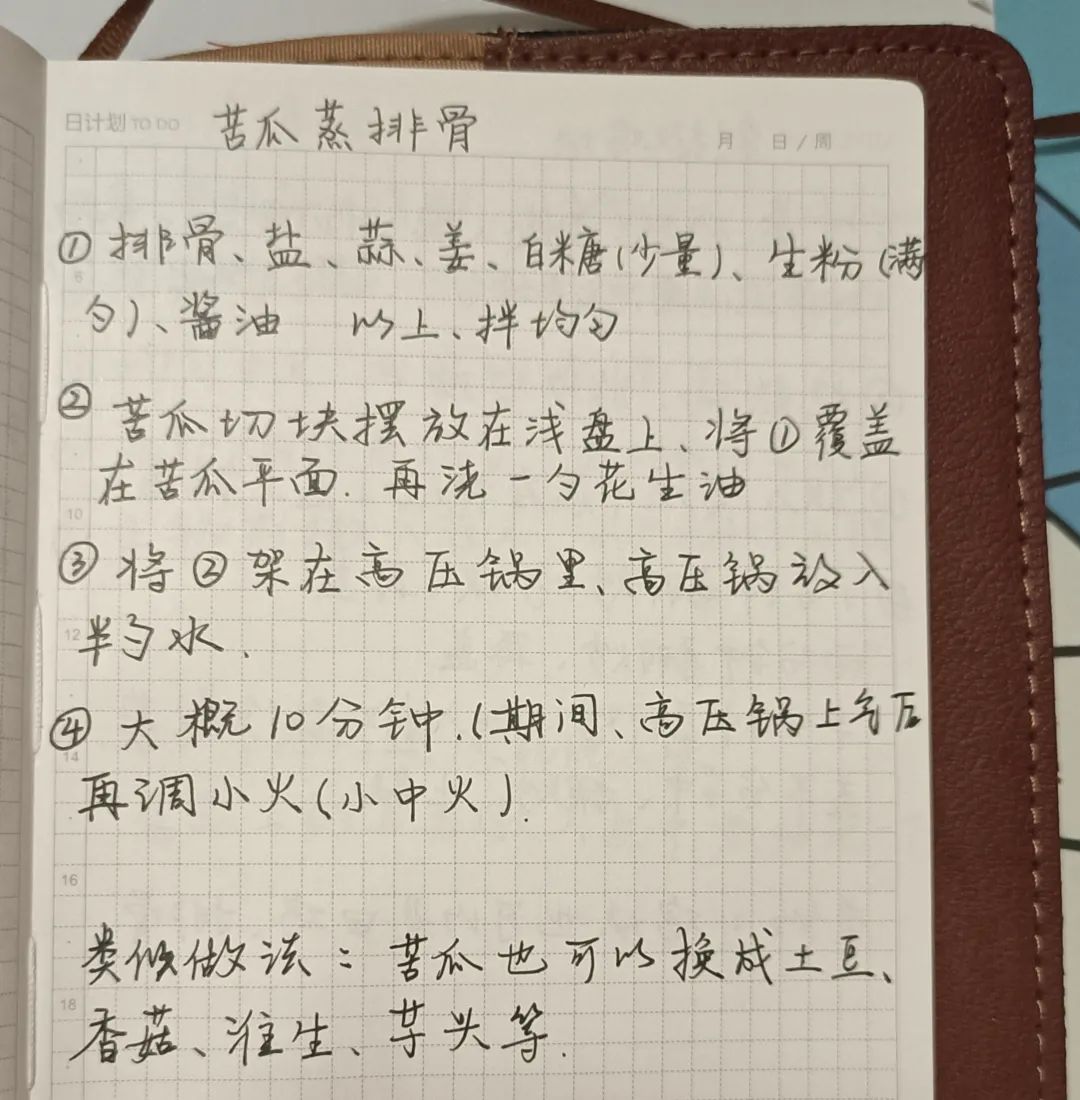 日计划 TO DO 苦瓜蒸排骨 月 日/周
①排骨、盐、蒜、姜、白糖(少量)、生粉(满
6
勺)、酱油 以上、拌均匀
② 苦瓜切块摆放在浅盘上、将①覆盖
在苦瓜平面.再浇一勺花生油
10
③将②架在高压锅里、高压锅放入
12
半勺水.
④大概10分钟.(期间、高压锅上气后
14
再调小火(小中火).
16
类似做法:苦瓜也可以换成土豆、
18
香菇、淮生、芋头等.